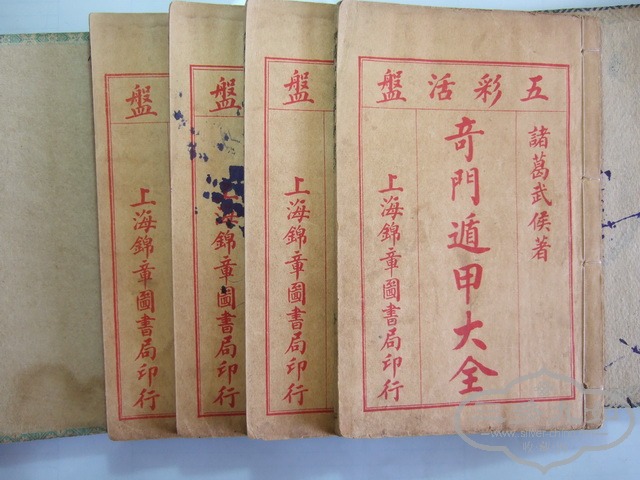 五彩活盤
諸葛武侯著
奇門遁甲大全
上海錦章圖書局印行
盤
上海錦章圖書局印行
盤
上海錦章圖書局印行
盤
上海錦章圖書局印行